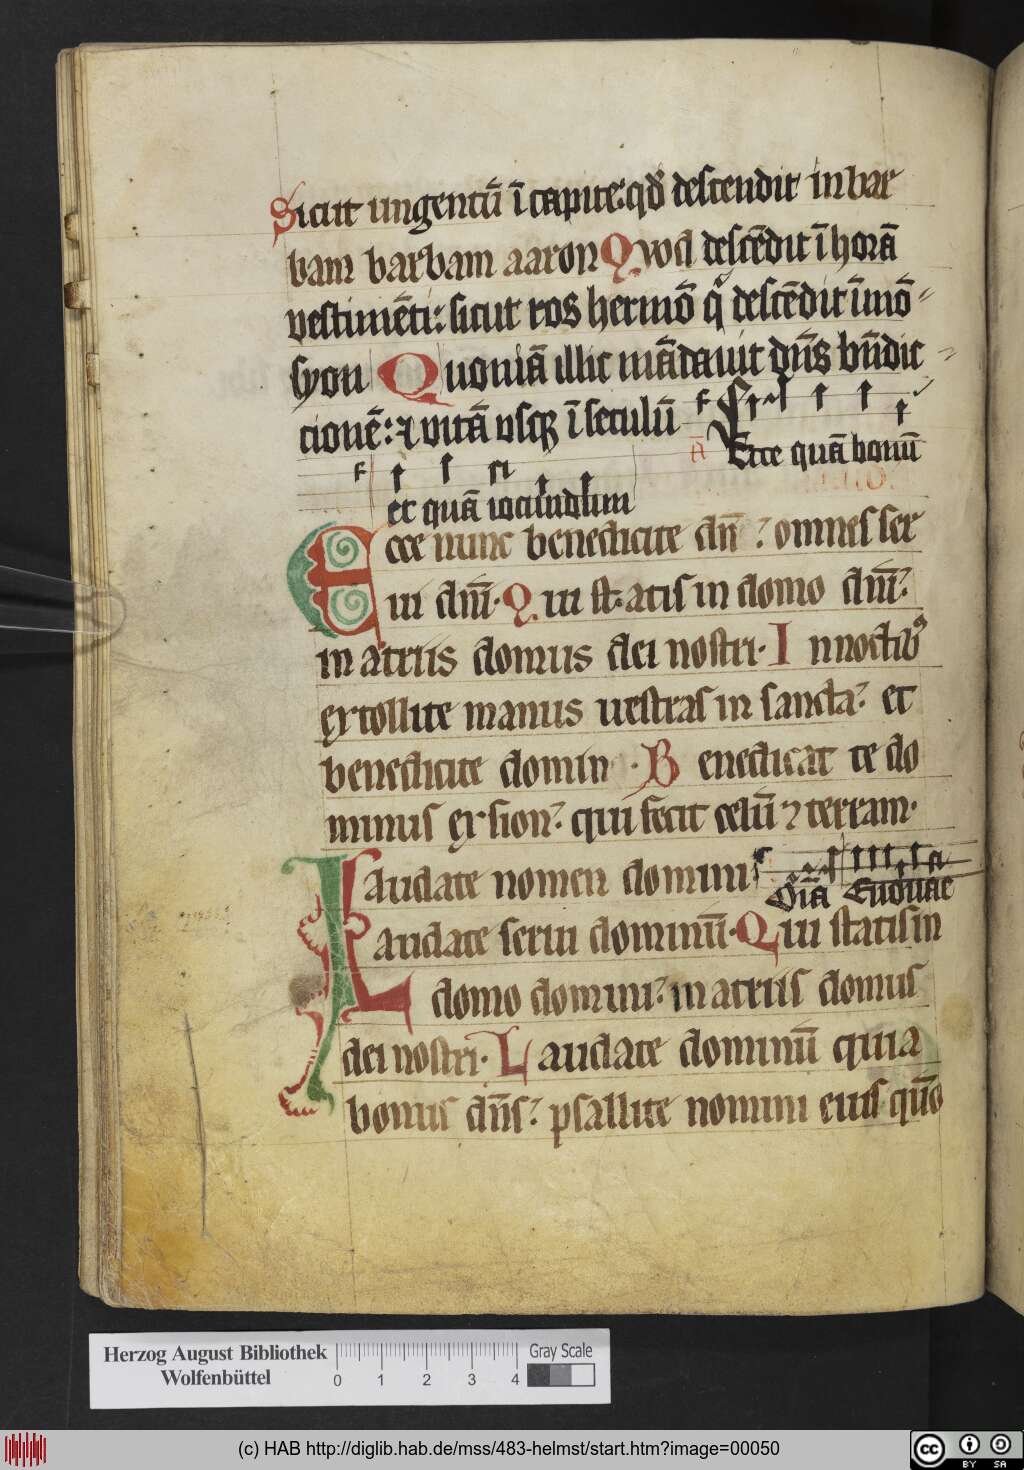 Sicut ungentū ī capite: qď descendit in bar
bam barbam aaron Quod descēdit ī horā
vestimēti: sicut ros hermō q̇ descēdit ī mō
syon Quoniā illic mādauit dn̄s bn̄dic
tionē: ⁊ vitā vsq ī seculū F
Ā Ecce quā bonū
F
et quā iocundum
Ecce nunc benedicite dn̄ omnes ser
ui dn̄i. Qui statis in domo dn̄i
in atriis domus dei nostri. In noctibꝰ
extollite manus uestras in sancta et
benedicite domin . Benedicat te do
minus ex sion qui fecit celū ⁊ terram.
Laudate nomen domini
Gl̄ia Euouae
laudate serui dominū. Qui statis in
domo domini in atriis domus
dei nostri. Laudate dominū quia
bonus dn̄s psallite nomini eius qm̄o
Herzog August Bibliothek
Wolfenbüttel
0 1 2 3 4
Gray Scale
(c) HAB http://diglib.hab.de/mss/483-helmst/start.htm?image=00050
cc BY SA